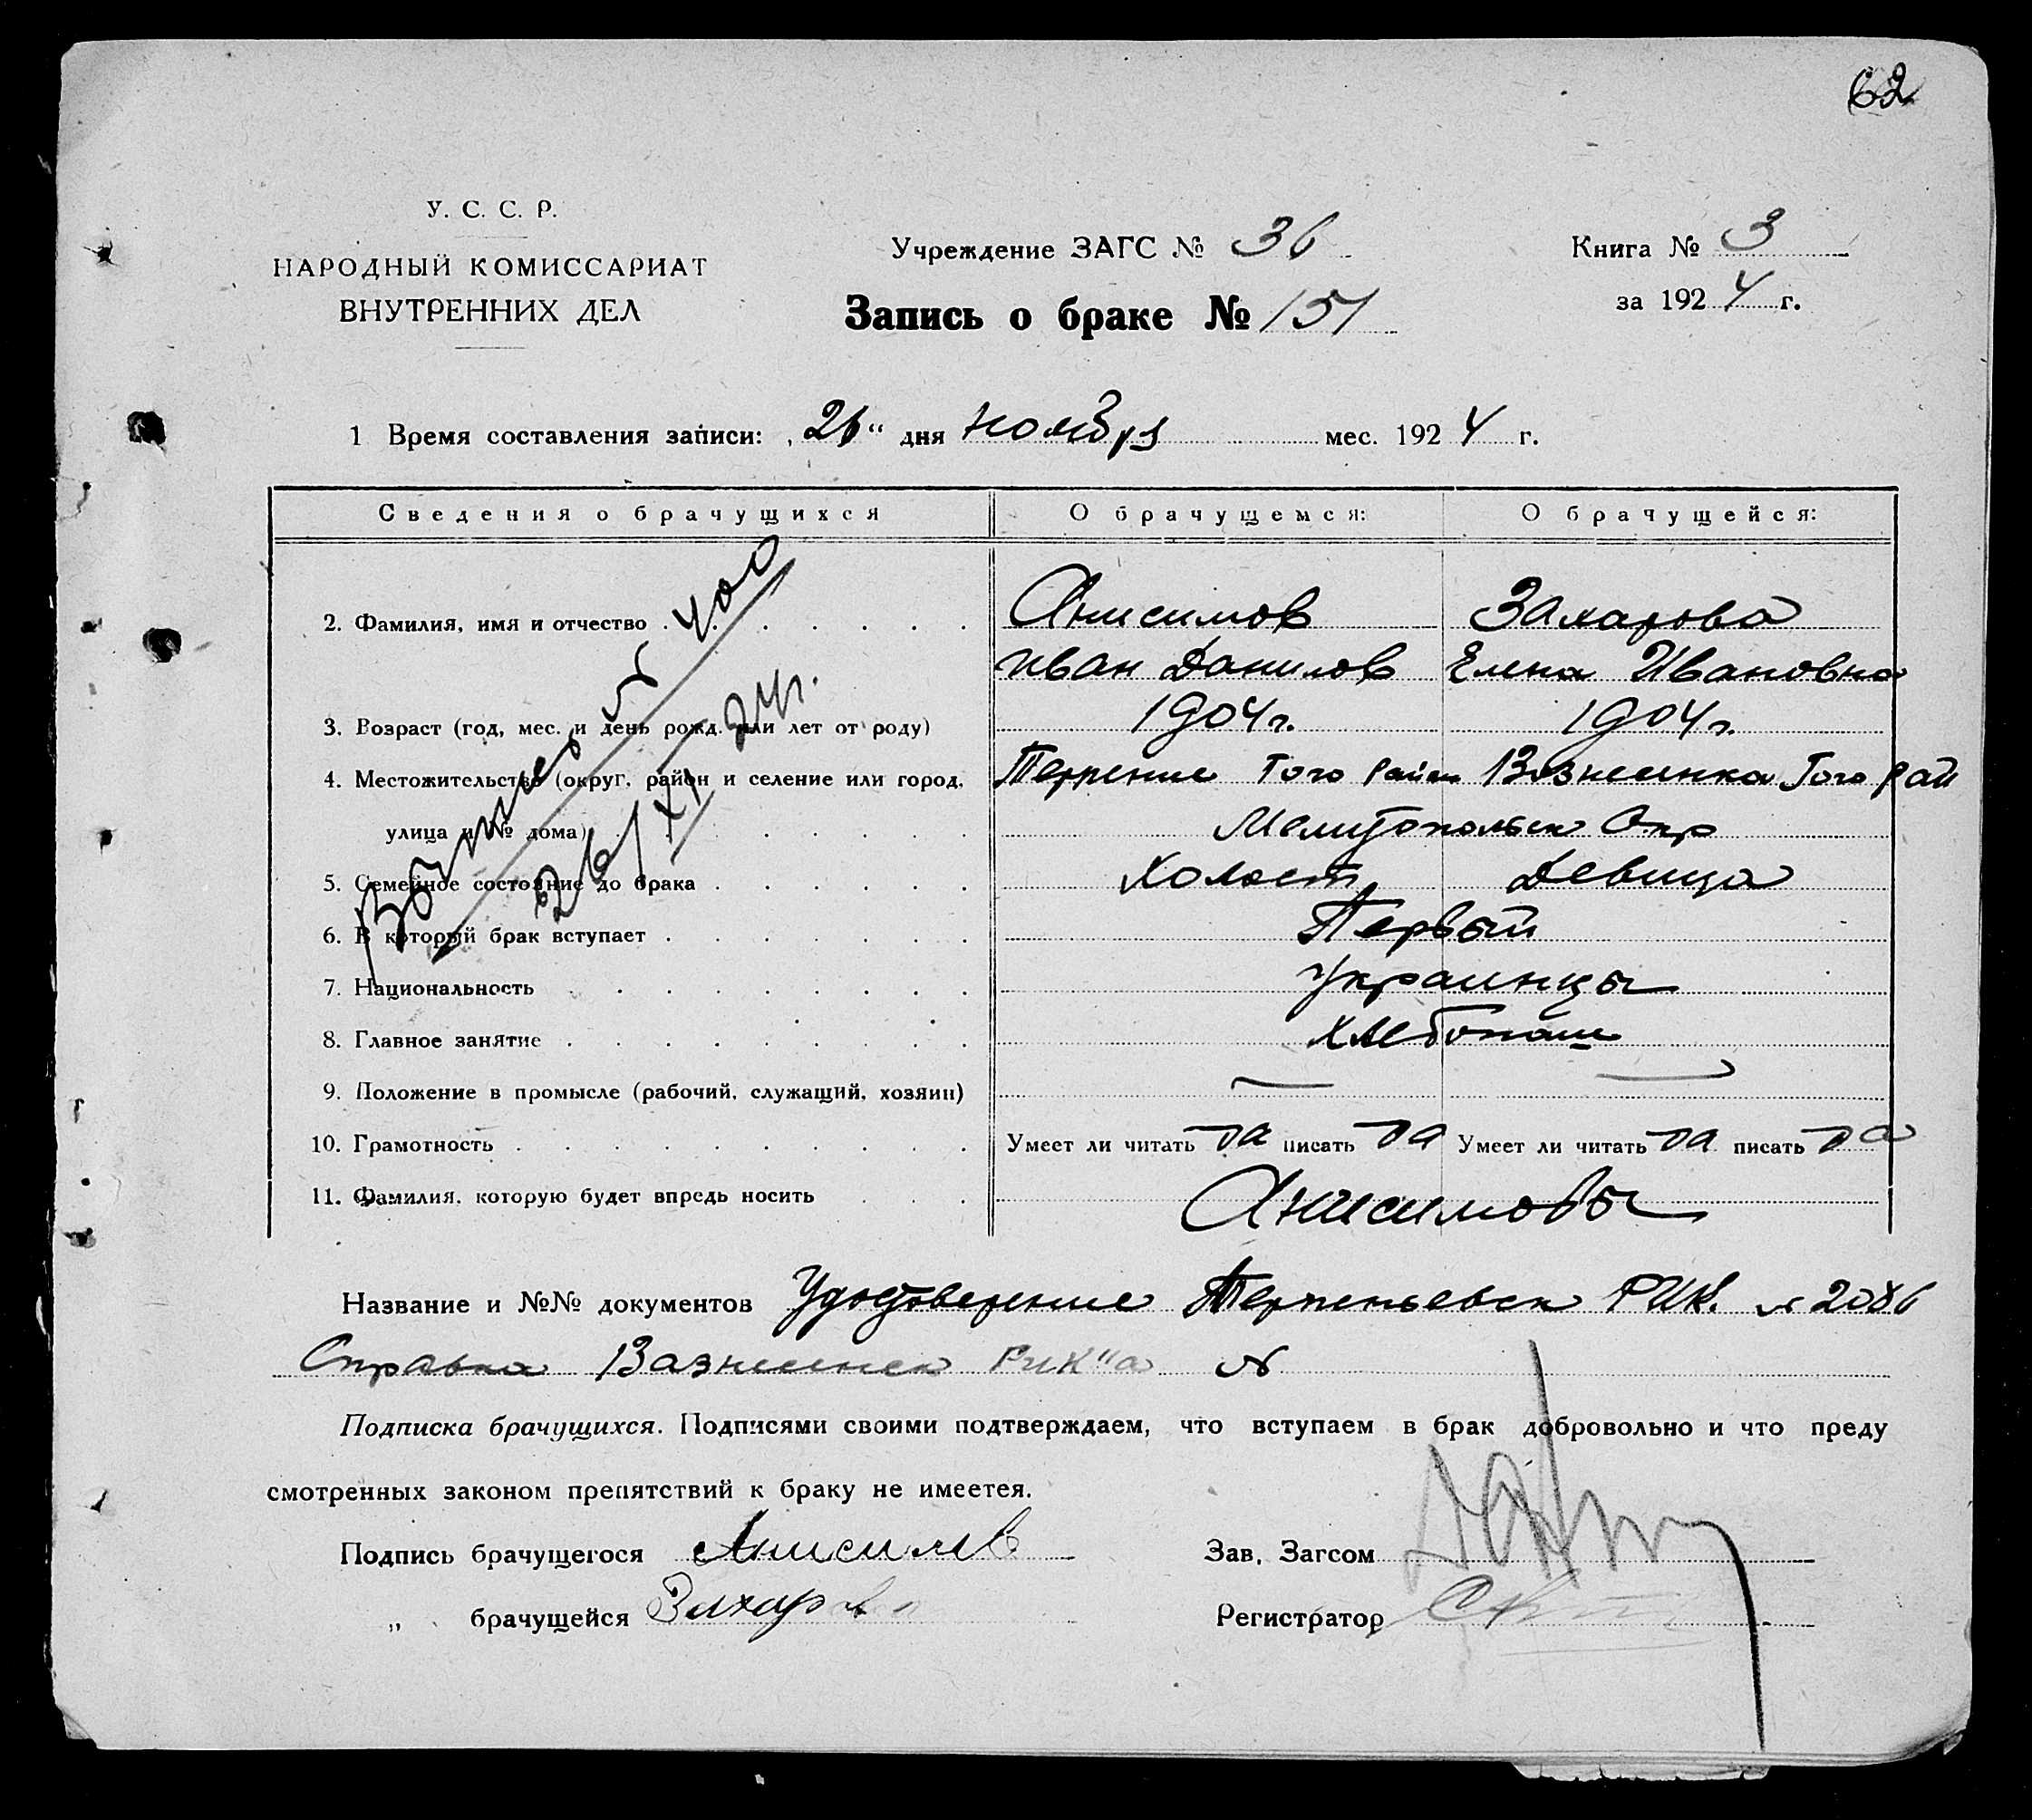 62
У. С. С. Р.
НАРОДНЫЙ КОМИССАРИАТ
ВНУТРЕННИХ ДЕЛ
Учреждение ЗАГС № 36
Книга № 3
за 1924 г.
Запись о браке № 151
1 Время составления записи: „26" дня ноября мес. 1924 г.
Сведения о брачущихся О брачущемся: О брачущейся:
2. Фамилия, имя и отчество Анисимов Захарова
Иван Данилов Елена Ивановна
3. Возраст (год, мес. и день рожд. или лет от роду) 1904 г. 1904 г.
4. Местожительство (округ, район и селение или город, Терпение Того Район Вознесенка Того рай
улица и № дома) Мелитопольск Окр
5. Семейное состояние до брака Холост Девица
6. В который брак вступает Первый
7. Национальность Украинцы
8. Главное занятие Хлебопаш
9. Положение в промысле (рабочий, служащий, хозяин) — —
10. Грамотность Умеет ли читать да писать да Умеет ли читать да писать да
11. Фамилия, которую будет впредь носить Анисимовы
№ 400
26/XI 24 г.
Название и №№ документов Удостоверение Терпеньевск РИК. № 2086
Справка Вазнесенск РИК"а №
Подписка брачущихся. Подписями своими подтверждаем, что вступаем в брак добровольно и что преду
смотренных законом препятствий к браку не имеетея.
Подпись брачущегося Анисимов Зав. Загсом
„ брачущейся Захарова Регистратор